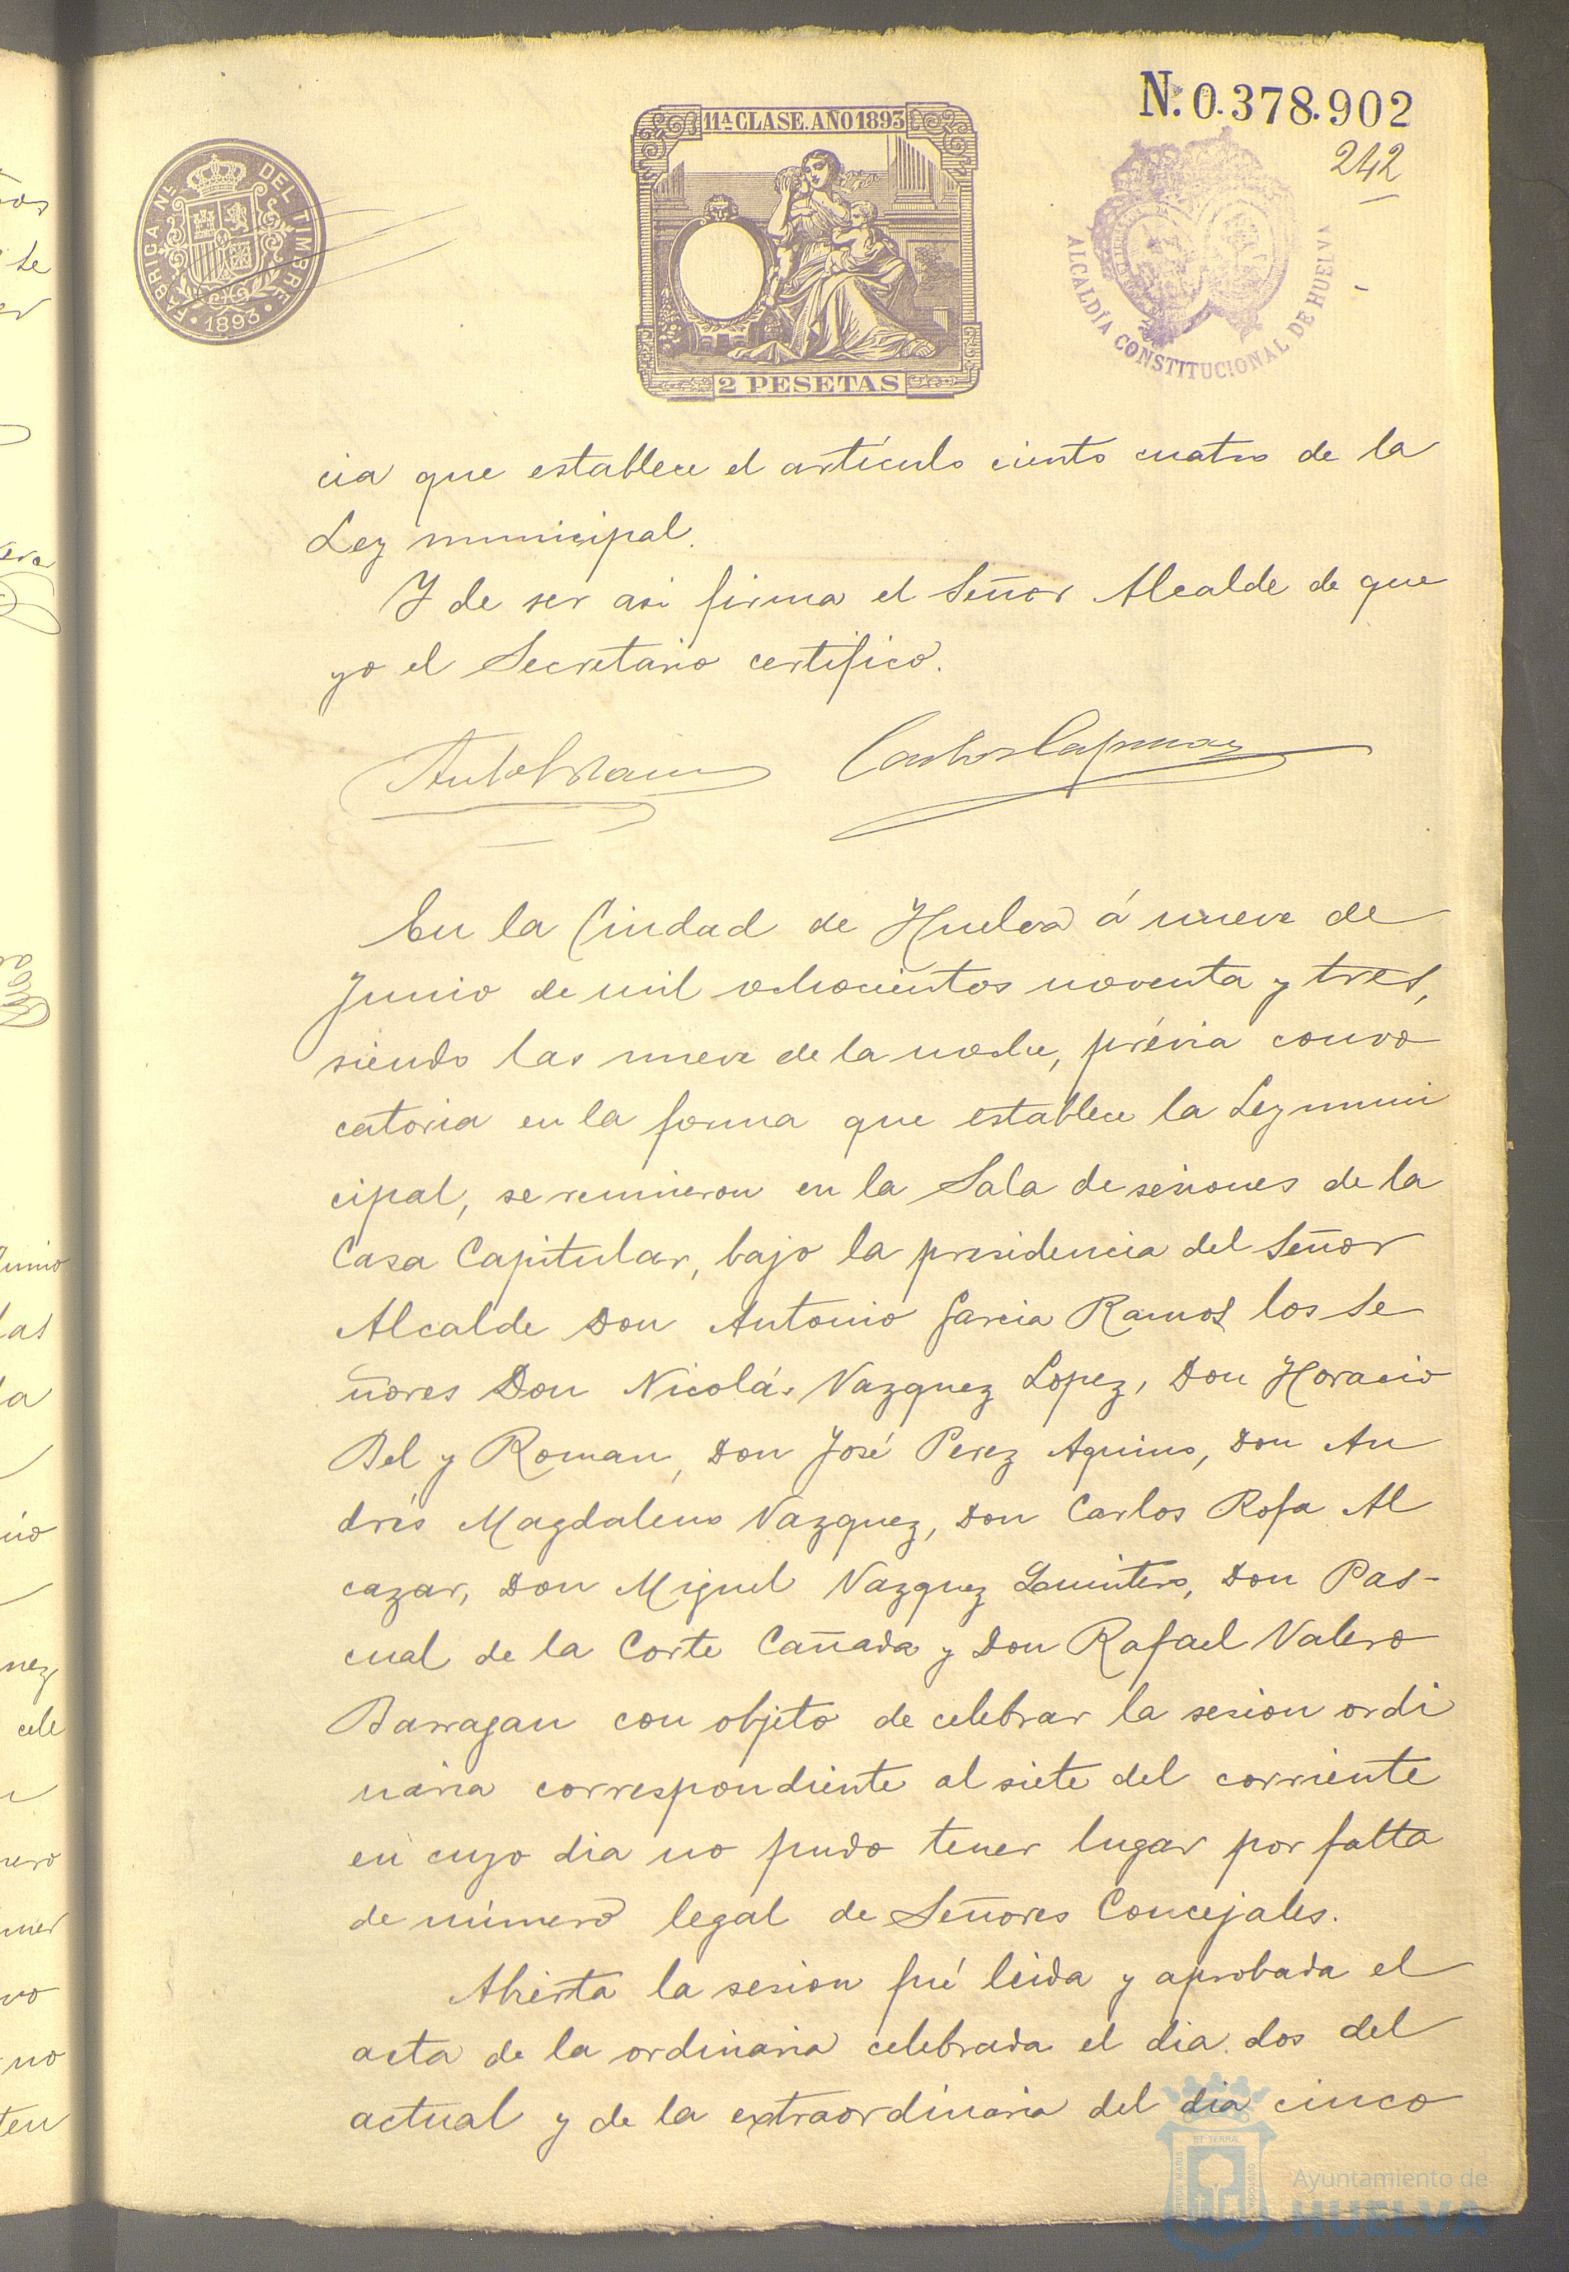 N. 0.378.902
242
11ª CLASE. AÑO 1893
FABRICA NL DEL TIMBRE
1893
2 PESETAS
ALCALDÍA CONSTITUCIONAL DE HUELVA
cia que establece el artículo ciento cuatro de la
Ley municipal.
Y de ser asi firma el Señor Alcalde de que
yo el Secretario certifico.
En la Ciudad de Huelva á nueve de
Junio de mil ochocientos noventa y tres,
siendo las nueve de la noche, prévia convo
catoria en la forma que establece la Ley muni
cipal, se reunieron en la Sala de sesiones de la
Casa Capitular, bajo la presidencia del Señor
Alcalde Don Antonio Garcia Ramos los Se
ñores Don Nicolás Vazquez Lopez, Don Horacio
Bel y Roman, Don José Perez Aquino, Don An
drés Magdaleno Vazquez, Don Carlos Rofa Al
cazar, Don Miguel Vazquez Quintero, Don Pas-
cual de la Corte Cañada y Don Rafael Valero
Barragan con objeto de celebrar la sesion ordi
naria correspondiente al siete del corriente
en cuyo dia no pudo tener lugar por falta
de número legal de Señores Concejales.
Abierta la sesion fué leida y aprobada el
acta de la ordinaria celebrada el dia dos del
actual y de la extraordinaria del dia cinco
Ayuntamiento de
HUELVA